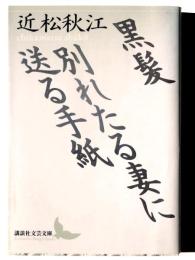 近松秋江
黒髪
別れたる妻に
送る手紙
講談社文芸文庫